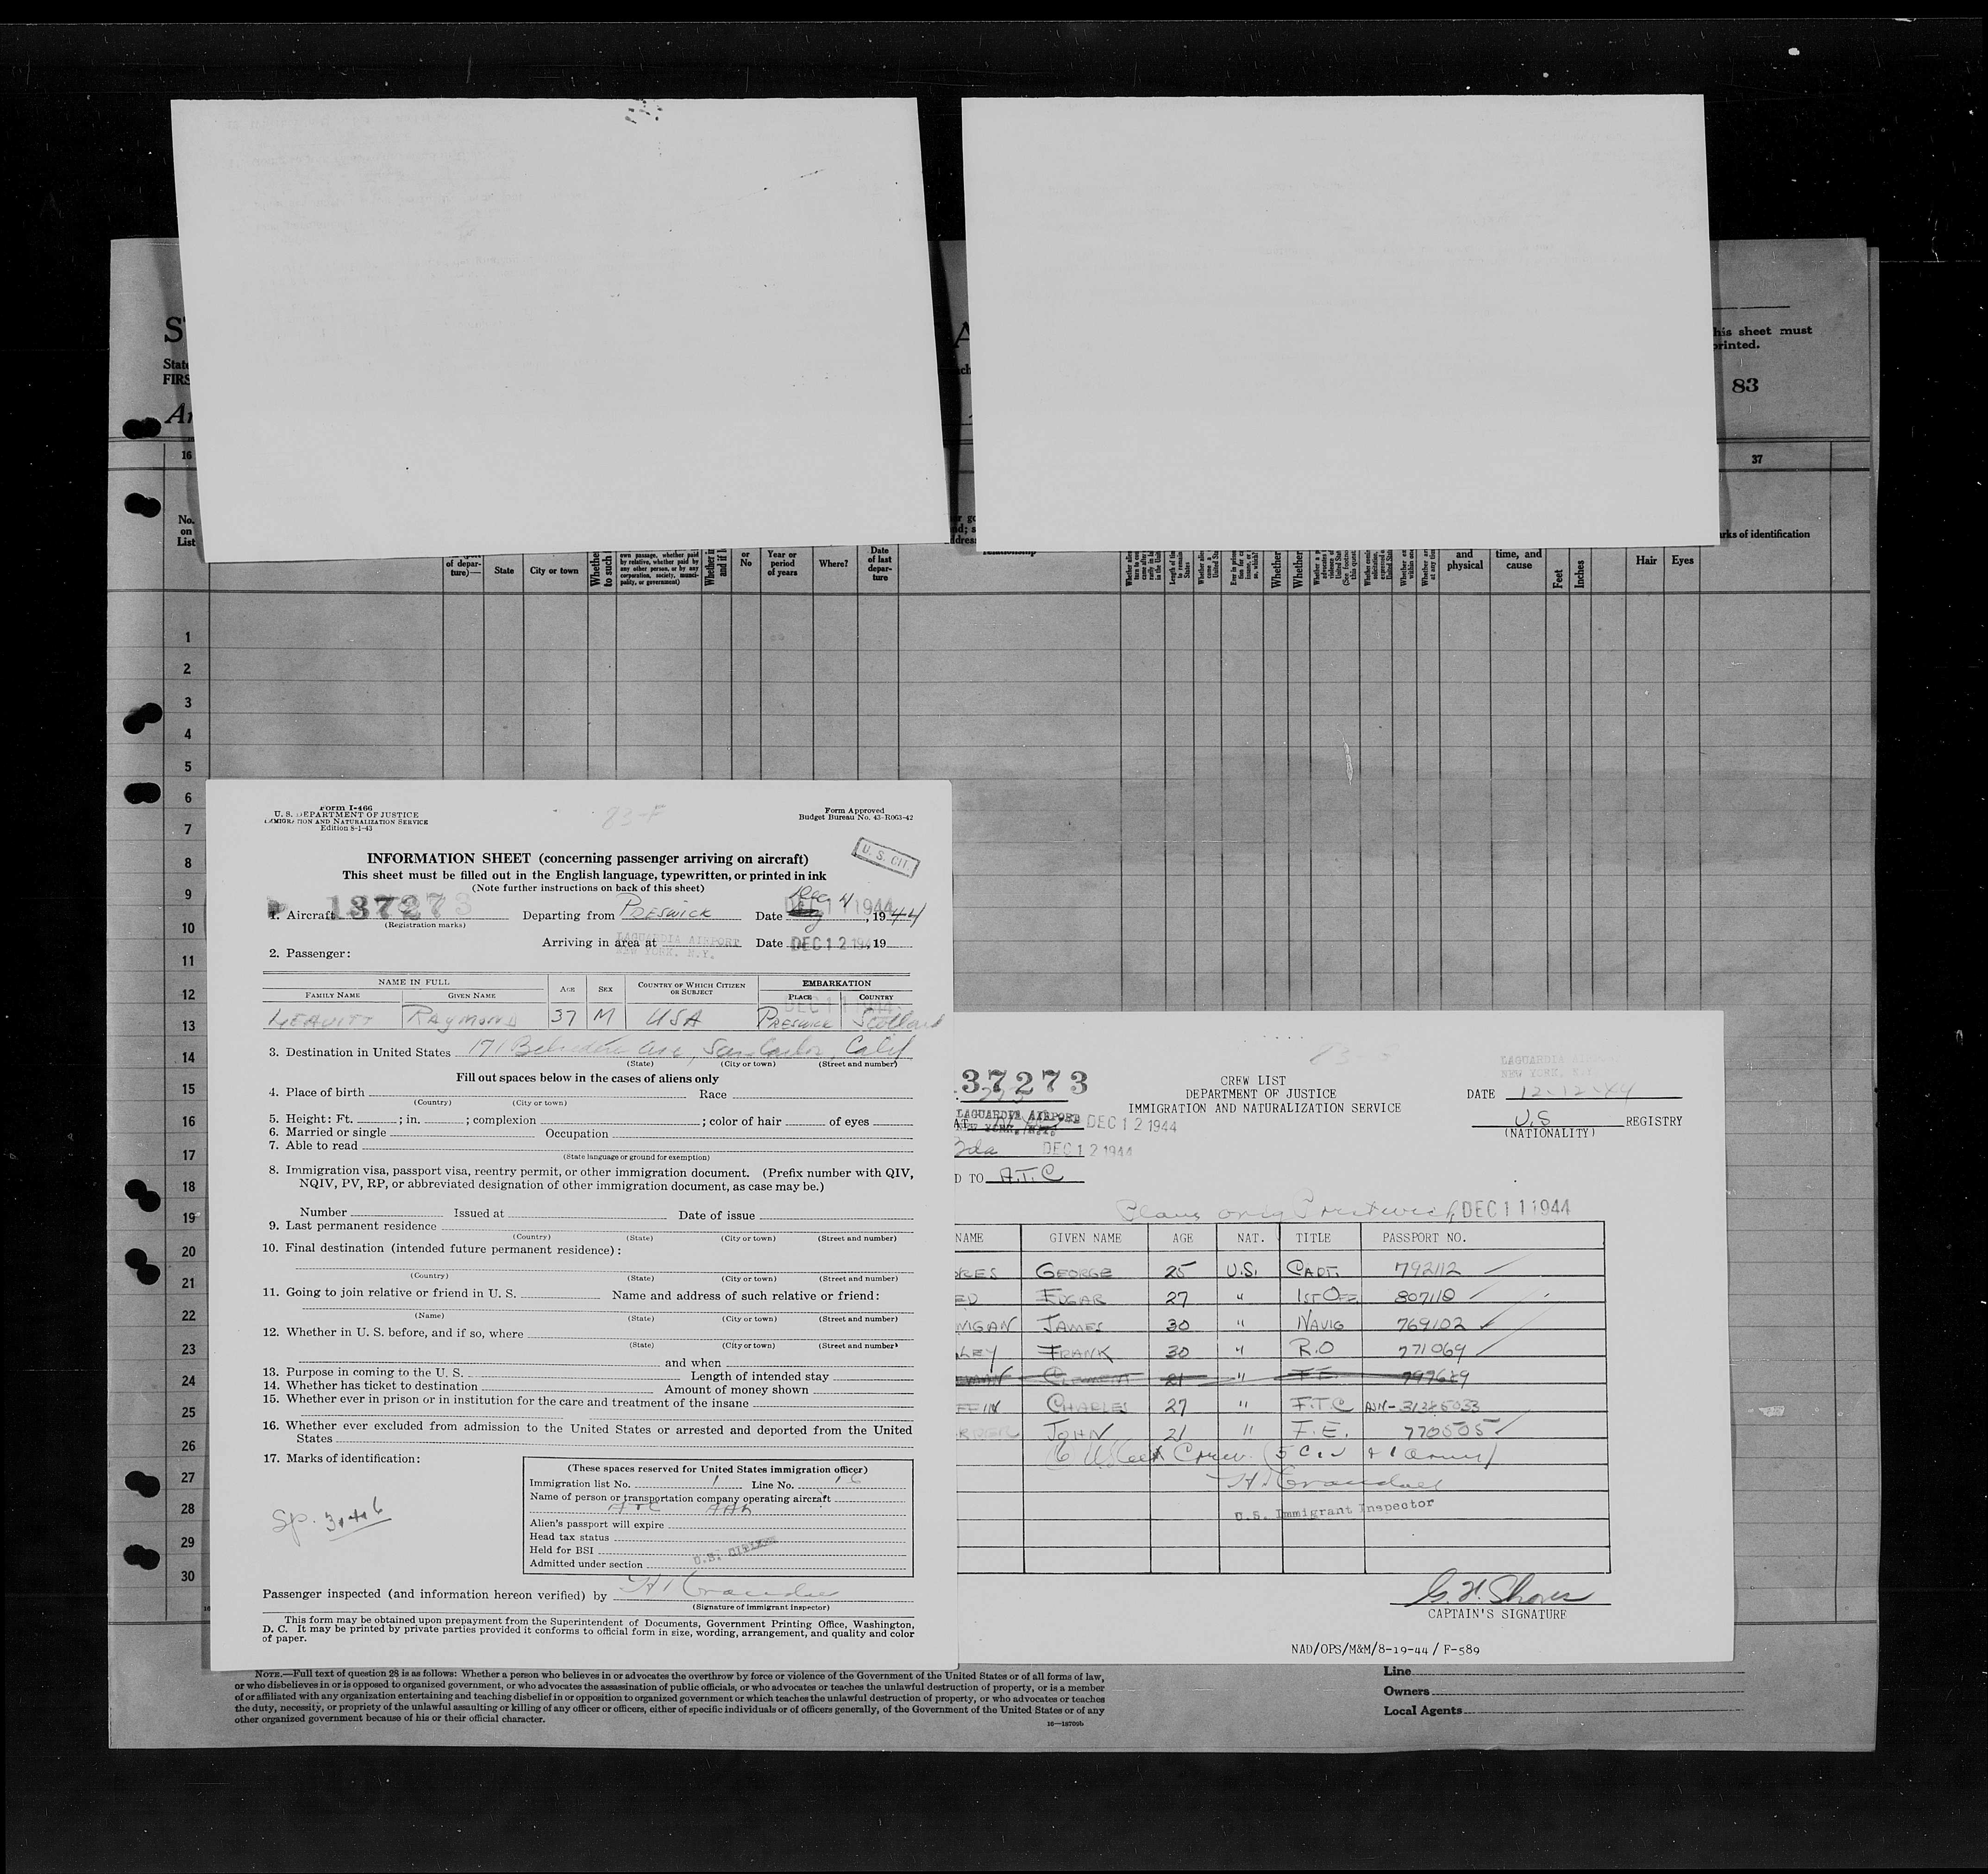 S
State
FIRS
A
his sheet must
printed.
83
16
37
No.
on
List
of depar-
ture)—
State
City or town
Whethe
to such
own passage, whether paid
by relative, whether paid by
any other person, or by any
corporation, society, munici-
pality, or government)
or
No
Year or
period
of years
Where?
Date
of last
depar-
ture
relationship
and
physical
time, and
cause
Feet
Inches
Hair
Eyes
rks of identification
1
2
3
4
5
6
7
8
9
10
11
12
13
14
15
16
17
18
19
20
21
22
23
24
25
26
27
28
29
30
Form I-466
U. S. DEPARTMENT OF JUSTICE
IMMIGRATION AND NATURALIZATION SERVICE
Edition 8-1-43
83-F
Form Approved
Budget Bureau No. 43-R063-42
U. S. CIT.
INFORMATION SHEET (concerning passenger arriving on aircraft)
This sheet must be filled out in the English language, typewritten, or printed in ink
(Note further instructions on back of this sheet)
1. Aircraft 137273 Departing from PRESWICK Date DEC 11 1944, 1944
(Registration marks)
Arriving in area at LAGUARDIA AIRPORT NEW YORK, N.Y. Date DEC 12 194, 19
2. Passenger:
NAME IN FULL AGE SEX COUNTRY OF WHICH CITIZEN OR SUBJECT EMBARKATION
FAMILY NAME GIVEN NAME PLACE COUNTRY
LEAVITT RAYMOND 37 M USA PRESWICK Scotland
3. Destination in United States 171 Belvedere Ave, San Carlos, Calif
(State) (City or town) (Street and number)
Fill out spaces below in the cases of aliens only
4. Place of birth Race
(Country) (City or town)
5. Height: Ft. ; in. ; complexion ; color of hair of eyes
6. Married or single Occupation
7. Able to read
(State language or ground for exemption)
8. Immigration visa, passport visa, reentry permit, or other immigration document. (Prefix number with QIV,
NQIV, PV, RP, or abbreviated designation of other immigration document, as case may be.)
Number Issued at Date of issue
9. Last permanent residence
(Country) (State) (City or town) (Street and number)
10. Final destination (intended future permanent residence):
(Country) (State) (City or town) (Street and number)
11. Going to join relative or friend in U. S. Name and address of such relative or friend:
(Name) (State) (City or town) (Street and number)
12. Whether in U. S. before, and if so, where
(State) (City or town) (Street and number)
and when
13. Purpose in coming to the U. S. Length of intended stay
14. Whether has ticket to destination Amount of money shown
15. Whether ever in prison or in institution for the care and treatment of the insane
16. Whether ever excluded from admission to the United States or arrested and deported from the United
States
17. Marks of identification:
(These spaces reserved for United States immigration officer)
Immigration list No. 1 Line No. 16
Name of person or transportation company operating aircraft
ATC
Alien's passport will expire
Head tax status
Held for BSI
Admitted under section U.S. CITIZEN
Sp.
Passenger inspected (and information hereon verified) by
(Signature of immigrant inspector)
This form may be obtained upon prepayment from the Superintendent of Documents, Government Printing Office, Washington,
D. C. It may be printed by private parties provided it conforms to official form in size, wording, arrangement, and quality and color
of paper.
37273
CREW LIST
DEPARTMENT OF JUSTICE
IMMIGRATION AND NATURALIZATION SERVICE
LAGUARDIA
NEW YORK
DATE 12-12-44
U.S REGISTRY
(NATIONALITY)
AT LAGUARDIA AIRPORT DEC 12 1944
Bda DEC 12 1944
D TO A.T.C
Plane orig Prestwick DEC 11 1944
NAME GIVEN NAME AGE NAT. TITLE PASSPORT NO.
RES GEORGE 25 U.S. CAPT. 792112
ED EDGAR 27 " 1ST OFF 807118
NIGAN JAMES 30 " NAVIG 769102
LEY FRANK 30 " R.O 771069
CLEMENT 21 " F.E. 797629
FFIN CHARLES 27 " F.T.C ASN-31385033
JOHN 21 " F.E. 770505
6 US Cit Crew (5 Civ & 1 Army)
U.S. Immigrant Inspector
G. H. Shores
CAPTAIN'S SIGNATURE
NAD/OPS/M&M/8-19-44 / F-589
NOTE.—Full text of question 28 is as follows: Whether a person who believes in or advocates the overthrow by force or violence of the Government of the United States or of all forms of law,
or who disbelieves in or is opposed to organized government, or who advocates the assassination of public officials, or who advocates or teaches the unlawful destruction of property, or is a member
of or affiliated with any organization entertaining and teaching disbelief in or opposition to organized government or which teaches the unlawful destruction of property, or who advocates or teaches
the duty, necessity, or propriety of the unlawful assaulting or killing of any officer or officers, either of specific individuals or of officers generally, of the Government of the United States or of any
other organized government because of his or their official character.
Line
Owners
Local Agents